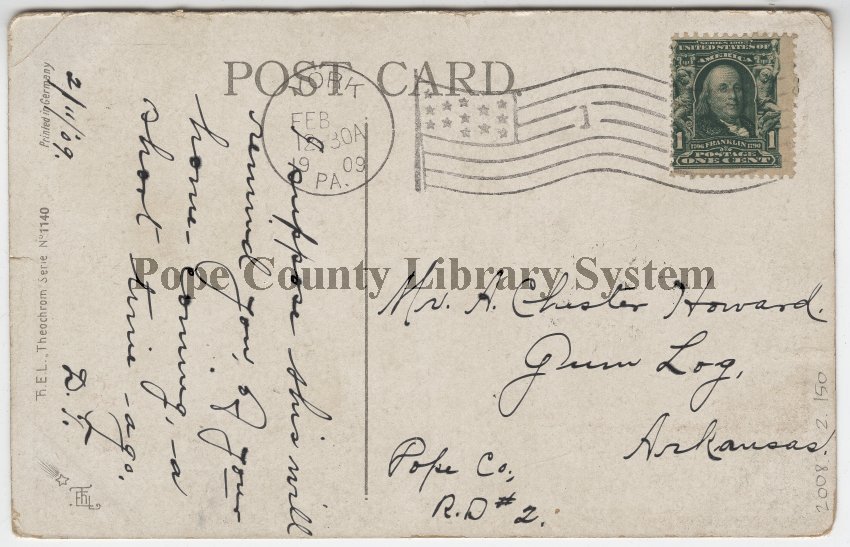 POST CARD
YORK
FEB
12 30A
19 09
PA.
1
SERIES 1902
UNITED STATES OF
AMERICA
1706 FRANKLIN 1790
1 POSTAGE 1
ONE CENT
Printed in Germany
T.E.L., Theochrom Serie Nº 1140
2/11/09.
I suppose this will
remind you, of your
home-coming, -a
short time -ago.
D. F.
Mr. A. Chester Howard.
Gum Log,
Arkansas.
Pope Co.,
R.D #2.
Pope County Library System
2008. 2. 150